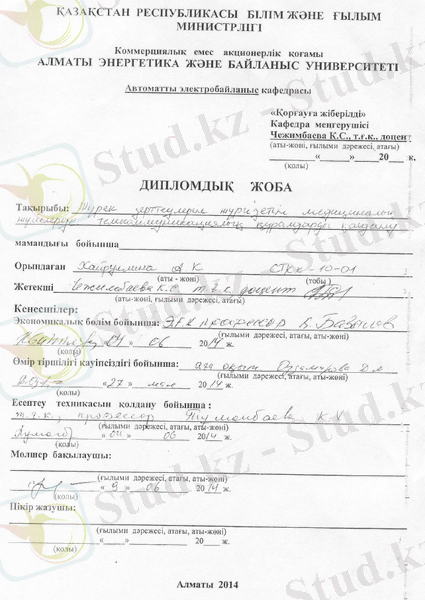 ҚАЗАҚСТАН РЕСПУБЛИКАСЫ БІЛІМ ЖӘНЕ ҒЫЛЫМ
МИНИСТРЛІГІ
Коммерциялық емес акционерлік қоғамы
АЛМАТЫ ЭНЕРГЕТИКА ЖӘНЕ БАЙЛАНЫС УНИВЕРСИТЕТІ
Автоматты электробайланыс кафедрасы
«Қорғауға жіберілді»
Кафедра меңгерушісі
Чежимбаева К.С., т.ғ.к., доцент
(аты-жөні, ғылыми дәрежесі, атағы)
«____»____20___ к.
(қолы)
ДИПЛОМДЫҚ ЖОБА
Тақырыбы: Жүрек зерттеулерін жүргізетін медициналық
телекоммуникациялық құралдарды
мамандығы бойынша
Орындаған Хайруллина А К СТКк-10-01
(аты - жөні) (тобы)
Жетекші Чежимбаева К.С т.ғ.к. доцент
(аты-жөні, ғылыми дәрежесі, атағы)
Кеңесшілер:
Экономикалық бөлім бойынша: профессор
(ғылыми дәрежесі, атағы, аты-жөні)
06 2014 ж.
(қолы)
Өмір тіршілігі қауіпсіздігі бойынша: аға оқыт.
(ғылыми дәрежесі, атағы, аты-жөні)
«27» мая 2014 ж.
(қолы)
Есептеу техникасын қолдану бойынша:
т.ғ.к., профессор Туманбаева К.Х
(ғылыми дәрежесі, атағы, аты-жөні)
«04» 06 2014 ж.
(қолы)
Мөлшер бақылаушы:
(ғылыми дәрежесі, атағы, аты-жөні)
«9» 06 2014 ж.
(қолы)
Пікір жазушы:
(ғылыми дәрежесі, атағы, аты-жөні)
«____»____20___ ж.
(қолы)
Алматы 2014
Stud.kz - Stud.kz